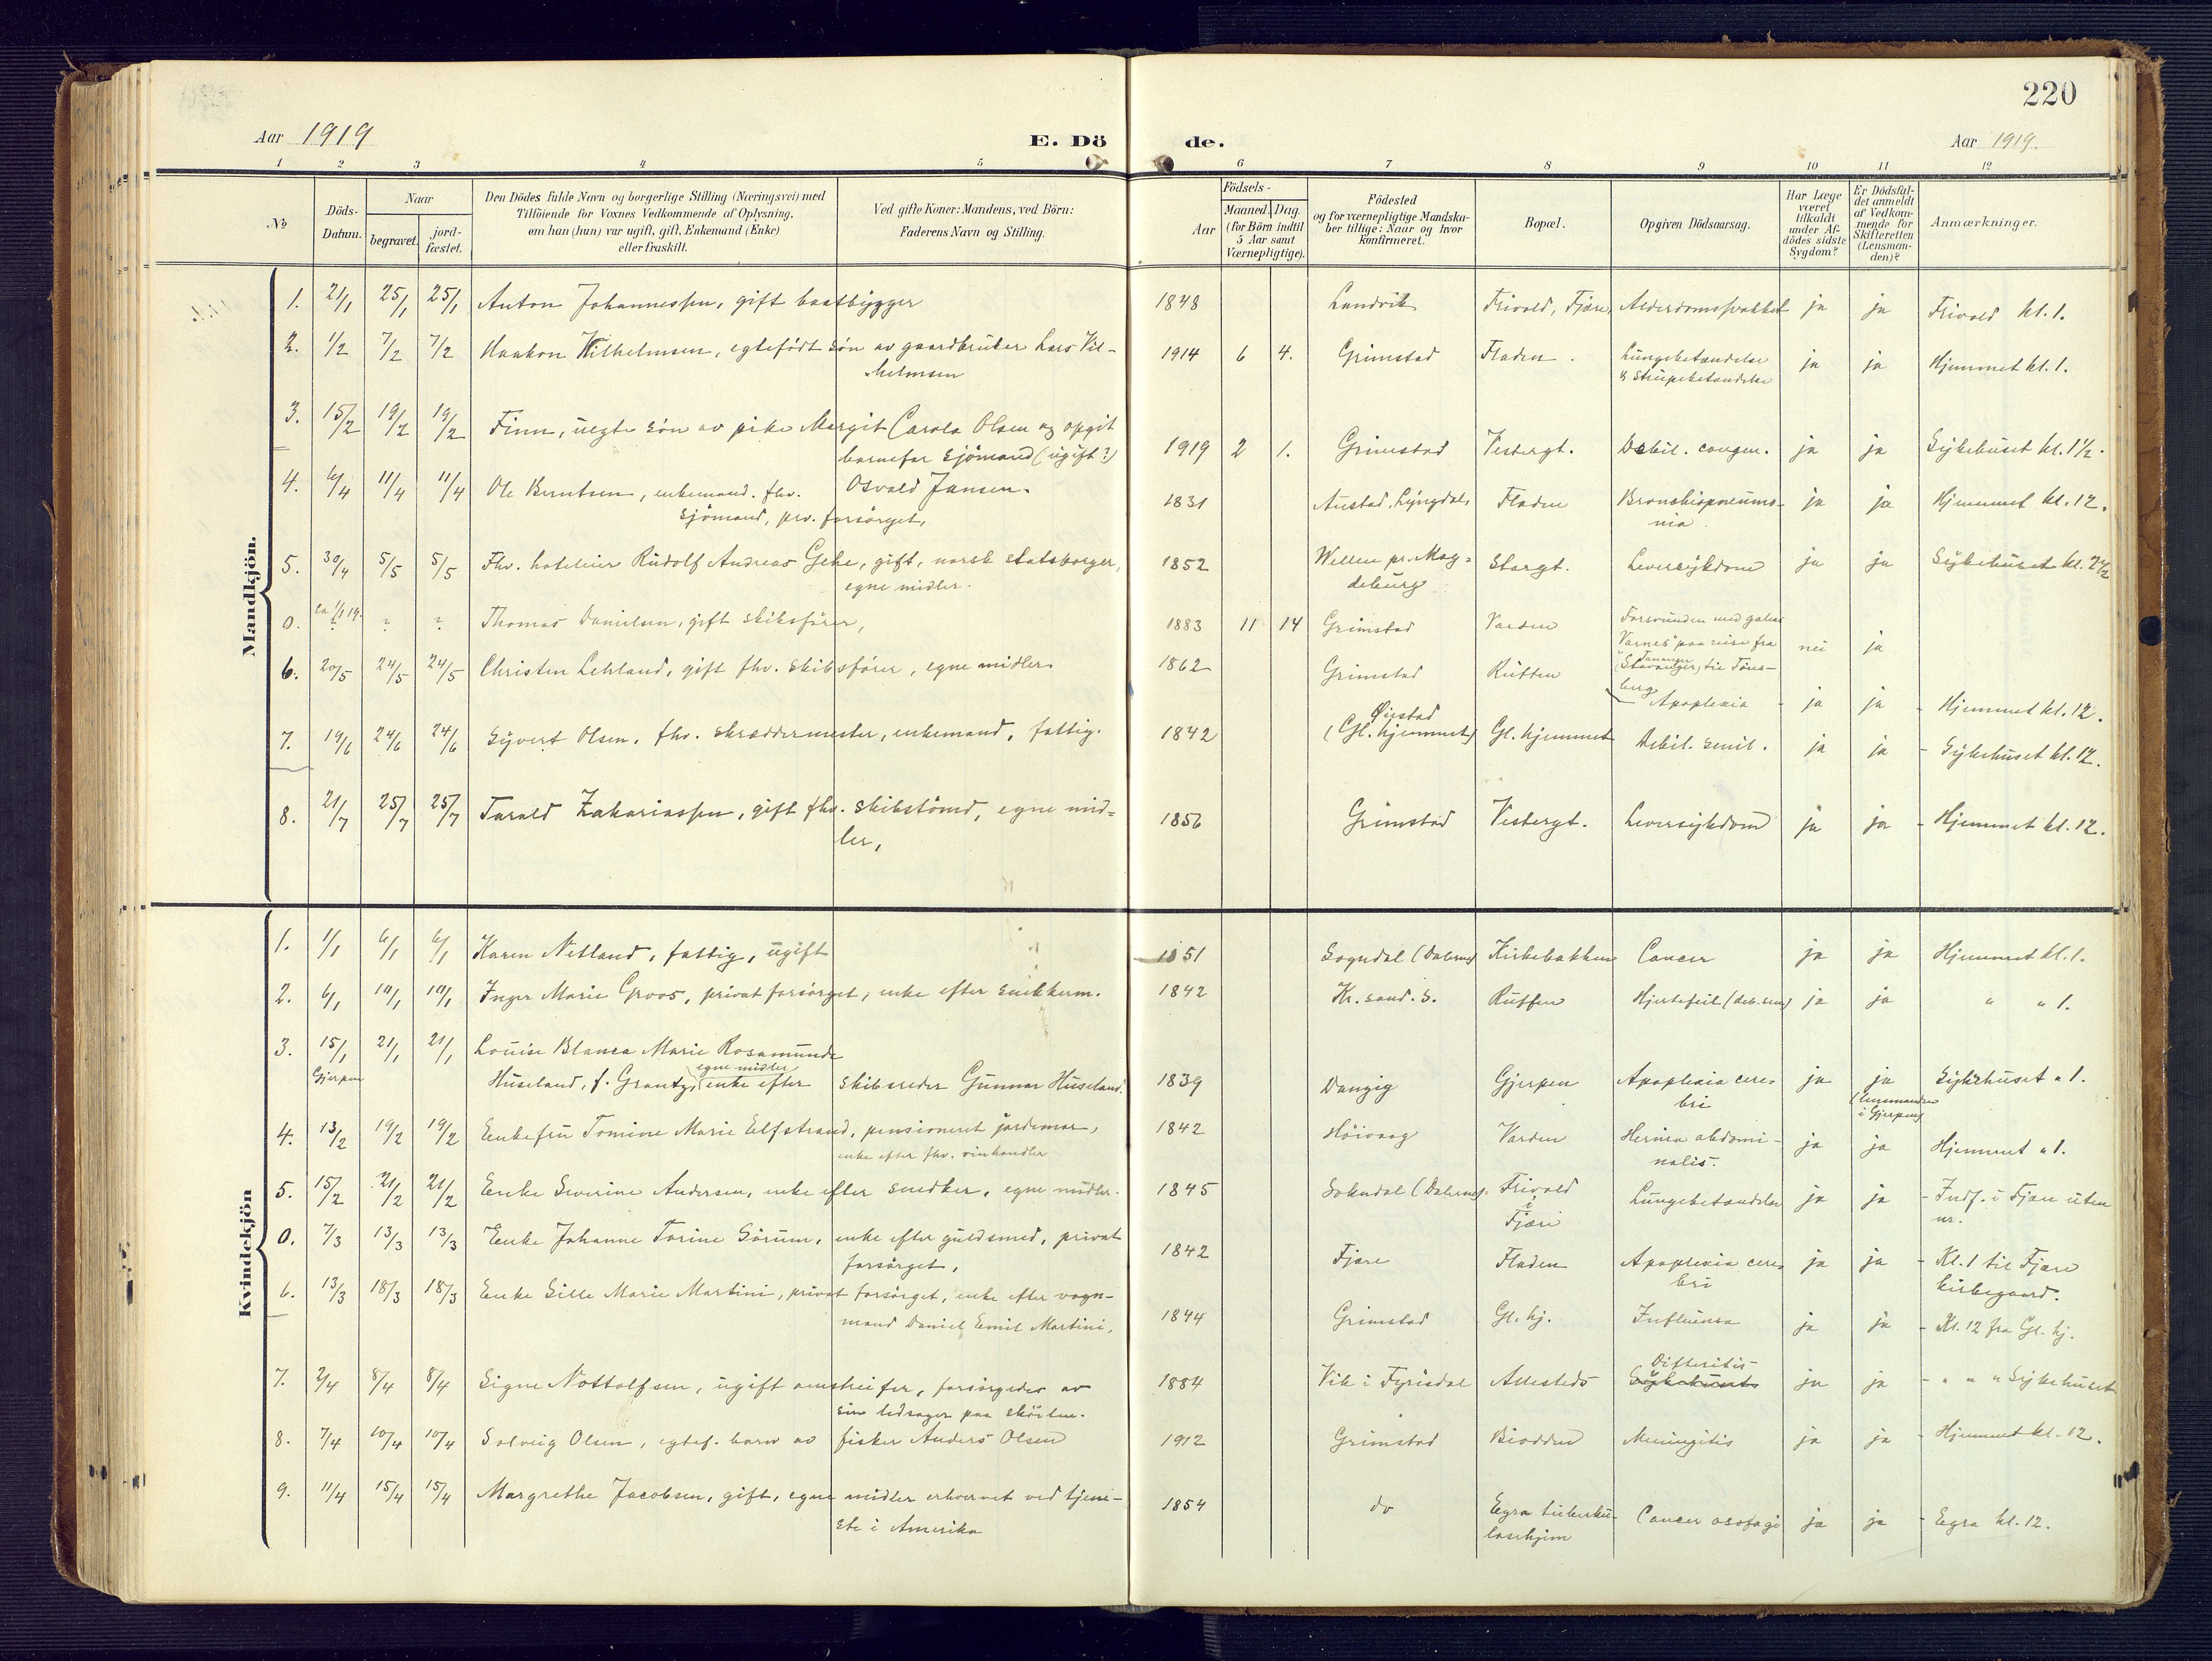 220
Aar 1919
E. Dö de.
Aar 1919.
1 2 3 4 5 6 7 8 9 10 11 12
No
Döds-Datum.
Naar
begravet.
jord-fæstet.
Den Dödes fulde Navn og borgerlige Stilling (Næringsvei) med
Tilföiende for Voxnes Vedkommende af Oplysning,
om han (hun) var ugift, gift, Enkemand (Enke)
eller fraskilt.
Ved gifte Koner: Mandens, ved Börn:
Faderens Navn og Stilling.
Födsels-
Aar
Maaned. Dag.
(for Börn indtil
5 Aar samt
Værnepligtige).
Födested
og for værnepligtige Mandska-
ber tillige: Naar og hvor
konfirmeret.
Bopæl.
Opgiven Dödsaarsag.
Har Læge
været
tilkaldt
under Af-
dödes sidste
Sygdom?
Er Dödsfal-
det anmeldt
af Vedkom-
mende for
Skifteretten
(Lensman-
den)?
Anmærkninger.
Mandkjön.
1. 21/1 25/1 25/1 Anton Johannessen, gift baatbygger 1848 Landvik Frivold, Fjære, Alderdomssvakhet ja ja Frivold kl. 1.
2. 1/2 7/2 7/2 Haakon Wilhelmsen, egtefödt sön av gaardbruker Lars Vil-
helmsen 1914 6 4. Grimstad Fladen. Lungebetændelse
& strupebetændelse ja ja Hjemmet kl. 1.
3. 15/2 19/2 19/2 Finn, uegte sön av pike Margit Carola Olsen og opgit
barnefar sjömand (ugift?)
Osvald Jansen. 1919 2 1. Grimstad Vestergt. Debil. congen. ja ja Sykehuset kl. 1½.
4. 6/4 11/4 11/4 Ole Berntsen, enkemand. fhv.
sjömand, prv. forsörget, 1831 Austad, Lyngdal, Fladen Bronchiopneumo-
nia. ja ja Hjemmet kl. 12.
5. 30/4 5/5 5/5 Fhv. hotelier Rudolf Andreas Gehe, gift, norsk statsborger,
egne midler. 1852 Wellen pr. Mag-
deburg Storgt. Leversykdom ja ja Sykehuset kl. 2½
0. ca 1/1 19. ? ? Thomas Danielsen, gift skibsförer, 1883 11 14 Grimstad Varden Forsvunden med galeas
"Varnes" paa reise fra
Tananger
(Stavanger) til Töns-
berg nei ja
6. 20/5 24/5 24/5 Christen Lehland, gift fhv. skibsförer, egne midler 1862 Grimstad Rutten Apoplexia ja ja Hjemmet kl. 12.
7. 19/6 24/6 24/6 Syvert Olsen, fhv. skræddermester, enkemand, fattig. 1842 Øiestad
(Gl. hjemmet) Gl. hjemmet Debil. senil. ja ja Sykehuset kl. 12.
8. 21/7 25/7 25/7 Tarald Zakariassen, gift fhv. skibstömd, egne mid-
ler, 1856 Grimstad Vestergt. Leversykdom ja ja Hjemmet kl. 12.
Kvindekjön
1. 1/1 6/1 6/1 Karen Netland, fattig, ugift 1851 Sogndal (Dalerne) Kirkebakken Cancer ja ja Hjemmet kl. 1.
2. 6/1 10/1 10/1 Inger Marie Groos, privat forsörget, enke efter snikkerm. 1842 Kr.sand. S. Rutten Hjertefeil (deb. sen) ja ja " " 1.
3. 15/1 21/1 21/1 Louise Blanca Marie Rosamunde
Gjerpen Huseland, f. Grantz, egne midler enke efter skibsreder Gunnar Huseland. 1839 Danzig Gjerpen Apoplexia cere-
bri ja ja
(lensmanden
i Gjerpen) Sykehuset " 1.
4. 13/2 19/2 19/2 Enkefru Tomine Marie Elfstrand, pensioneret jordemor,
enke efter fhv. vinhandler 1842 Höivaag Varden Hernia abdomi-
nalis. ja ja Hjemmet " 1.
5. 15/2 21/2 21/2 Enke Severine Andersen, enke efter snedker, egne midler. 1845 Sokndal (Dalerne) Frivold
i
Fjære Lungebetændelse ja ja Indf. i Fjære uten
nr.
0. 7/3 13/3 13/3 Enke Johanne Torine Sörum, enke efter guldsmed, privat
forsörget, 1842 Fjære Fladen Apoplexia cere-
bri ja ja Kl. 1 til Fjære
kirkegaard.
6. 13/3 18/3 18/3 Enke Sille Marie Martini, privat forsörget, enke efter vogn-
mand Daniel Emil Martini, 1844 Grimstad Gl. hj. Influensa ja ja Kl. 12 fra Gl. hj.
7. 2/4 8/4 8/4 Signe Nottolfsen, ugift forsörgedes av
sin ledsager paa 1884 Vik i Fyrisdal Allesteds Difteritis
Sykehuset ja ja " " " Sykehuset
8. 7/4 10/4 10/4 Solveig Olsen, egtef. barn av fisker Anders Olsen 1912 Grimstad Biodden Meningitis ja ja Hjemmet kl. 12.
9. 11/4 15/4 15/4 Margrethe Jacobsen, gift, egne midler erhvervet ved tjene-
ste i Amerika 1854 do Egra tuberku-
losehjem Cancer osofagi ja ja Egra kl. 12.